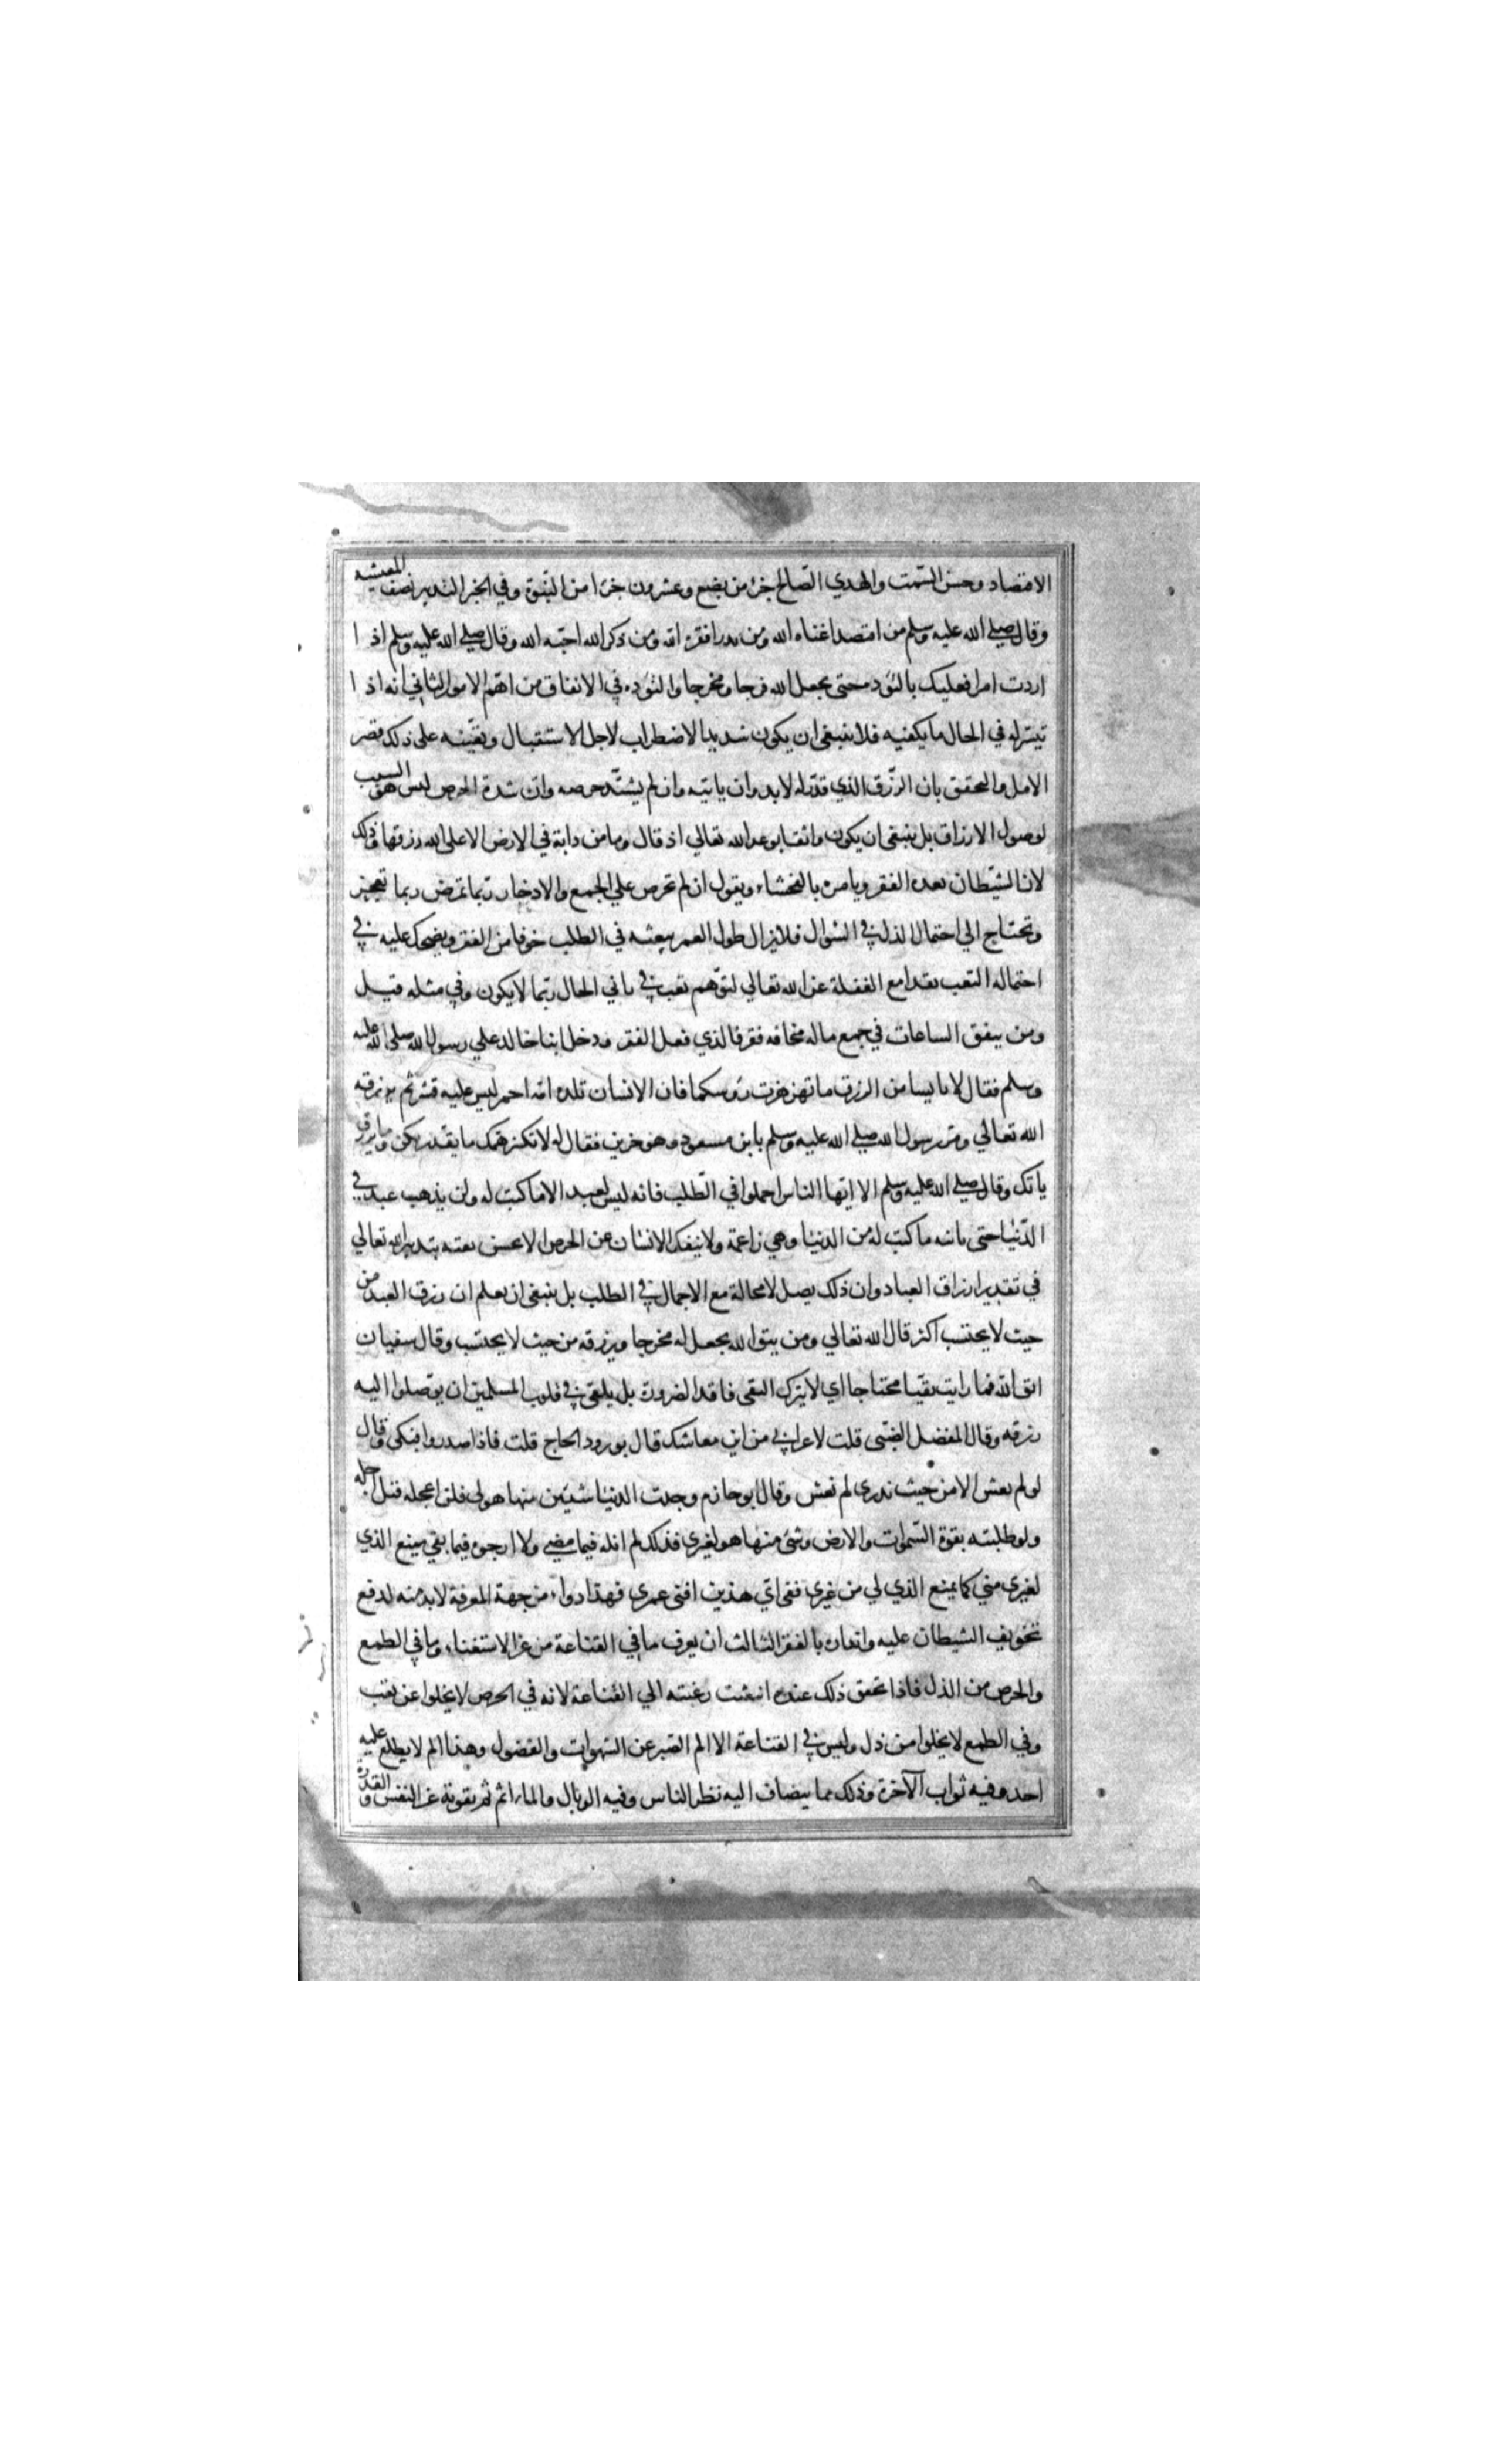 الاقتصاد وحسن السّمت والهدي الصّالح جزء من بضع وعشرون جزءا من النّبوّة وفي الخبر التدبير نصف المعيشه
وقال صلي الله عليه وسلم من اقتصد اغناه الله ومن بذر افقره الله ومن ذكر الله احبّه الله وقال صلي الله عليه وسلم اذا
اردت امرا فعليك بالتؤدة حتى يجعل الله فرجا ومخرجا والتؤده في الانفاق من اهمّ الامور الثاني انه اذا
تيسّر له في الحال ما يكفيه فلا ينبغي ان يكون شديد الاضطراب لاجل الاستقبال ويعينه على ذلك قصر
الامل والتحقق بان الرّزق الذي قدّر له لابد وان ياتيه وان لم يشتّد حرصه وان شدة الحرص ليس هو السبب
لوصول الارزاق بل ينبغي ان يكون واثقا بوعد الله تعالي اذ قال وما من دابة في الارض الا على الله رزقها وذلك
لان الشّيطان يعده الفقر ويامره بالفحشاء ويقول ان لم تحرص علي الجمع والادخار ربّما تمرض ربما تعجز
وتحتاج الي احتمال الذل في السّوال فلا يزال طول العمر يبعثه في الطلب خوفا من الفقر ويضحك عليه في
احتماله التعب نقدا مع الغفلة عن الله تعالي لتوّهم تعب في ثاني الحال ربّما لا يكون وفي مثله قيل
ومن ينفق الساعات في جمع ماله مخافه فقر فالذي فعل الفقر ودخل ابنا خالد علي رسول الله صلى الله عليه
وسلم فقال لا تايسا من الرزق ما تهزهزت رؤسكما فان الانسان تلده امّه احمر ليس عليه قشر ثم يرزقه
الله تعالي ومرّ رسول الله صلي الله عليه وسلم بابن مسعود وهو حزين فقال له لا تكثر همّك ما يقدّر يكن وما ترزق
ياتك وقال صلي الله عليه وسلم الا ايّها الناس اجملوا في الطّلب فانه ليس لعبد الا ما كتب له ولن يذهب عبد في
الدّنيا حتى ياتيه ما كتب له من الدنيا وهي راغمة ولا ينفك الانسان عن الحرص الا بحسن ثقته بتدبير الله تعالي
في تقدير ارزاق العباد وان ذلك يصل لا محالة مع الاجمال في الطلب بل ينبغي ان يعلم ان رزق العبد من
حيث لا يحتسب اكثر قال الله تعالي ومن يتق الله يجعل له مخرجا ويرزقه من حيث لا يحتسب وقال سفيان
اتق الله فما رايت تقيّا محتاجا اي لا يترك التقي فاقد الضرورة بل يلقي في قلوب المسلمين ان يوّصلوا اليه
رزقه وقال المفضل الضّبّى قلت لاعرابي من اين معاشك قال بورود الحاج قلت فاذا صدروا فبكى وقال
لو لم نعش الا من حيث ندرى لم نعش وقال ابو حازم وجدت الدنيا شيئين منها هو لي فلن اعجله قبل اجله
ولو طلبته بقوة السّموات والارض وشئ منها هو لغيري فذلك لم انله فيما مضي ولا ارجوه فيما بقي يمنع الذي
لغيرى منّي كما يمنع الذي لي من غيري ففي ايّ هذين افنى عمري فهذا دواء من جهة المعرفة لابد منه لدفع
تخويف الشيطان عليه وانذاره بالفقر الثالث ان يعرف ما في القناعة من عز الاستغناء وما في الطمع
والحرص من الذل فاذا تحقق ذلك عنده انبعثت رغبته الي القناعة لانه في الحرص لا يخلوا عن تعب
وفي الطمع لا يخلوا من ذل وليس في القناعة الا الم الصّبر عن الشهوات والفضول وهذا الم لا يطلع عليه
احد وفيه ثواب الآخرة وذلك مما يضاف اليه نظر الناس وفيه الوبال والماثم ثم يفوته عز النفس والقدرة